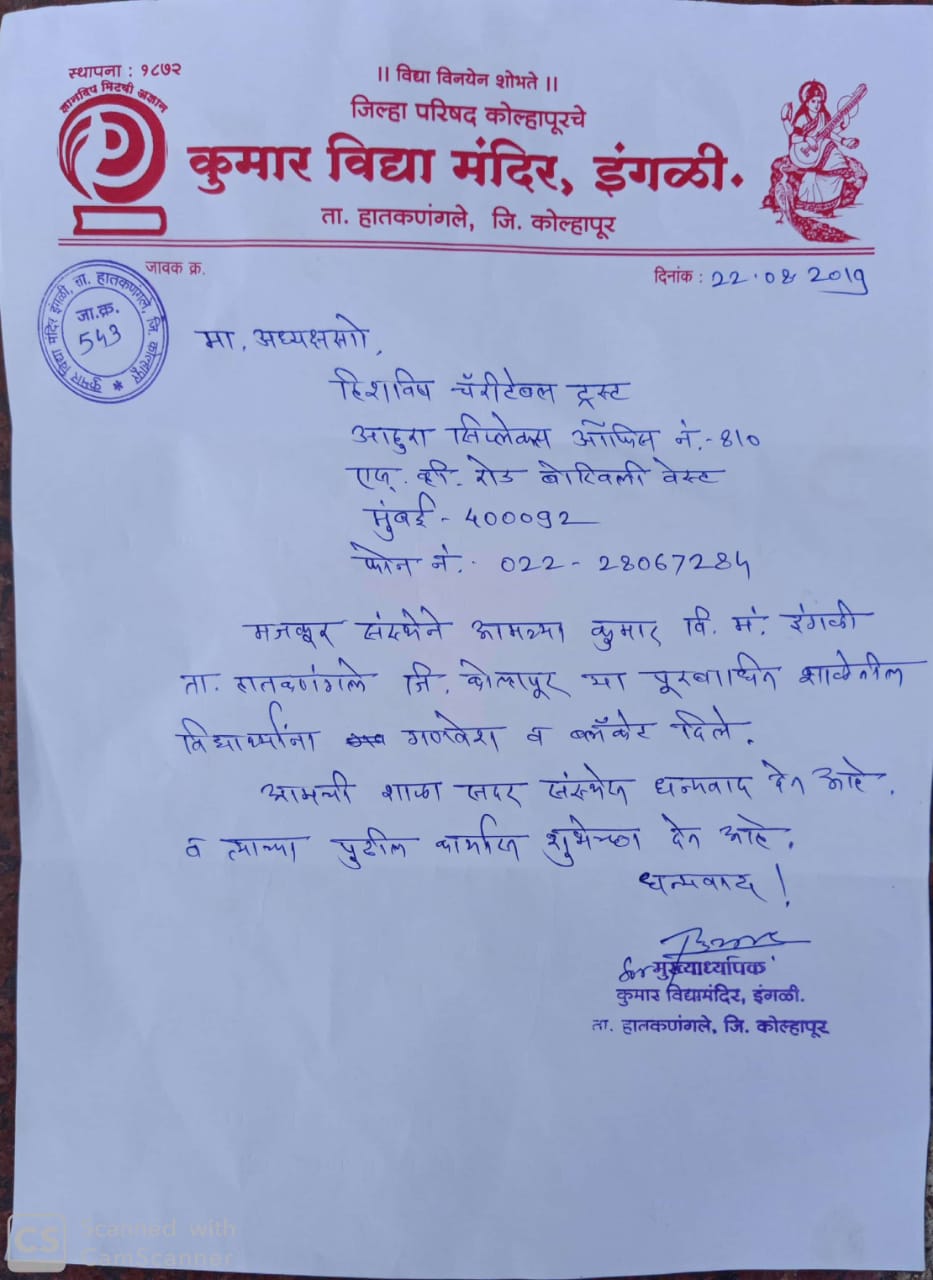 स्थापना : १८७२
ज्ञानदिप मिटवी अज्ञान
।। विद्या विनयेन शोभते ।।
जिल्हा परिषद कोल्हापूरचे
कुमार विद्या मंदिर, इंगळी.
ता. हातकणंगले, जि. कोल्हापूर
जावक क्र.
दिनांक : 22.08 2019
कुमार विद्या मंदिर इंगळी, ता. हातकणंगले, जि. कोल्हापूर
जा.क्र.
543
मा. अध्यक्षसो,
चॅरीटेबल ट्रस्ट
आहुरा सिप्लेक्स ऑफिस नं.- 810
एस्. व्ही. रोड बोरिवली वेस्ट
मुंबई - 400092
फोन नं. - 022 - 28067284
मजकूर संस्थेने आमच्या कुमार वि. मं. इंगळी
ता. हातकणंगले जि. कोल्हापूर या पूरबाधित शाळेतील
विद्यार्थ्यांना गणवेश व ब्लॅंकेट दिले.
आमची शाळा सदर संस्थेस धन्यवाद देत आहे.
व त्याच्या पुढील कार्यास शुभेच्छा देत आहे.
धन्यवाद !
for मुख्याध्यापक
कुमार विद्यामंदिर, इंगळी.
ता. हातकणंगले, जि. कोल्हापूर
CS Scanned with
CamScanner